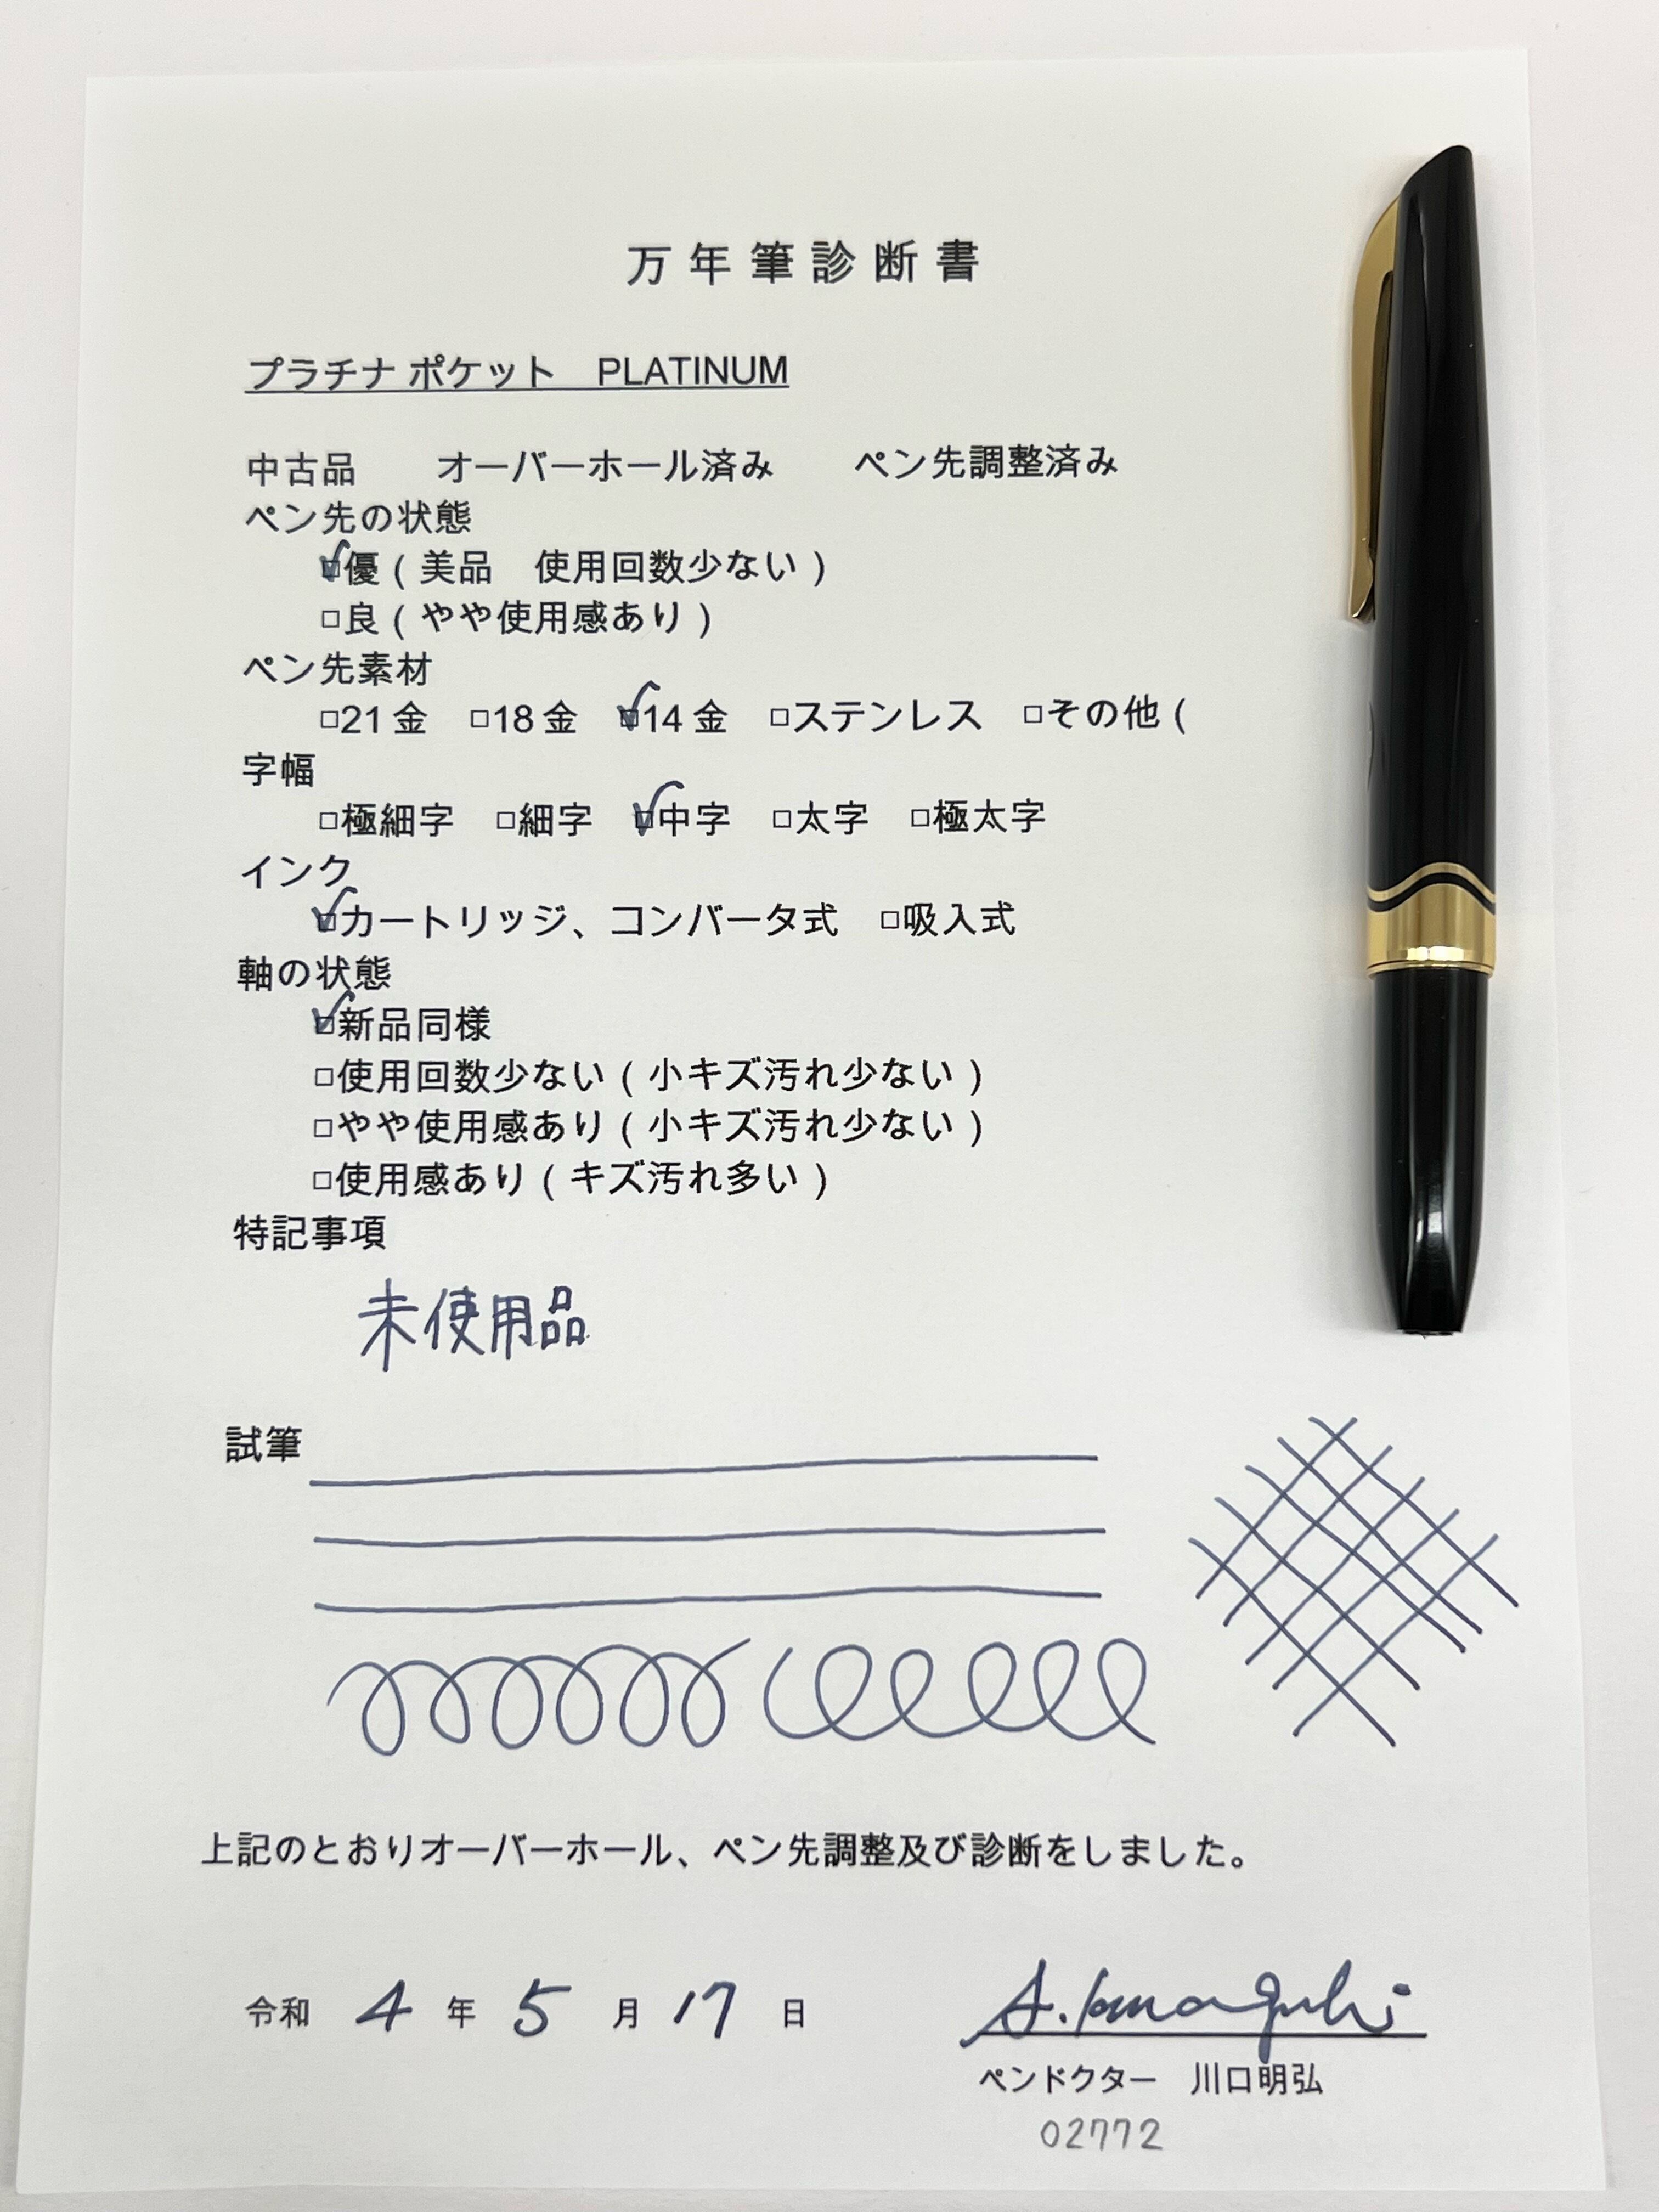 万年筆診断書
プラチナ ポケット　PLATINUM
中古品　　オーバーホール済み　　ペン先調整済み
ペン先の状態
☑優（美品　使用回数少ない）
□良（やや使用感あり）
ペン先素材
□21金　□18金　☑14金　□ステンレス　□その他（
字幅
□極細字　□細字　☑中字　□太字　□極太字
インク
☑カートリッジ、コンバータ式　□吸入式
軸の状態
☑新品同様
□使用回数少ない（小キズ汚れ少ない）
□やや使用感あり（小キズ汚れ少ない）
□使用感あり（キズ汚れ多い）
特記事項
未使用品
試筆
上記のとおりオーバーホール、ペン先調整及び診断をしました。
令和　4　年　5　月　17　日
ペンドクター　川口明弘
02772